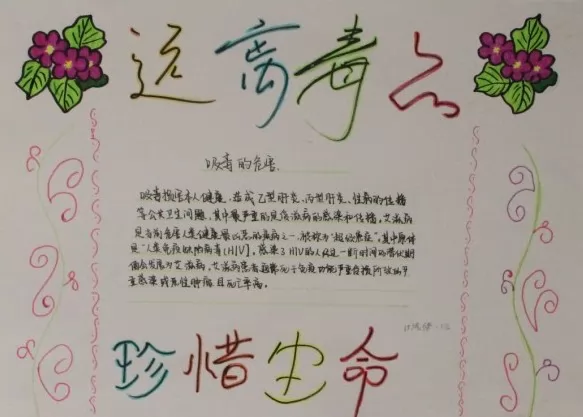 远离毒品
吸毒的危害
吸毒损害本人健康,造成乙型肝炎、丙型肝炎、性病的传播
等公共卫生问题,其中最严重的是艾滋病的感染和传播。艾滋病
是当前危害人类健康最凶恶的疾病之一,被称为"超级癌症",其中原体
是"人类免疫缺陷病毒(HIV)。感染了HIV的人在一定时间的潜伏期
后会发展为艾滋病,艾滋病患者最终死于免疫功能严重
感染或恶性肿瘤,且死亡率高。
珍惜生命